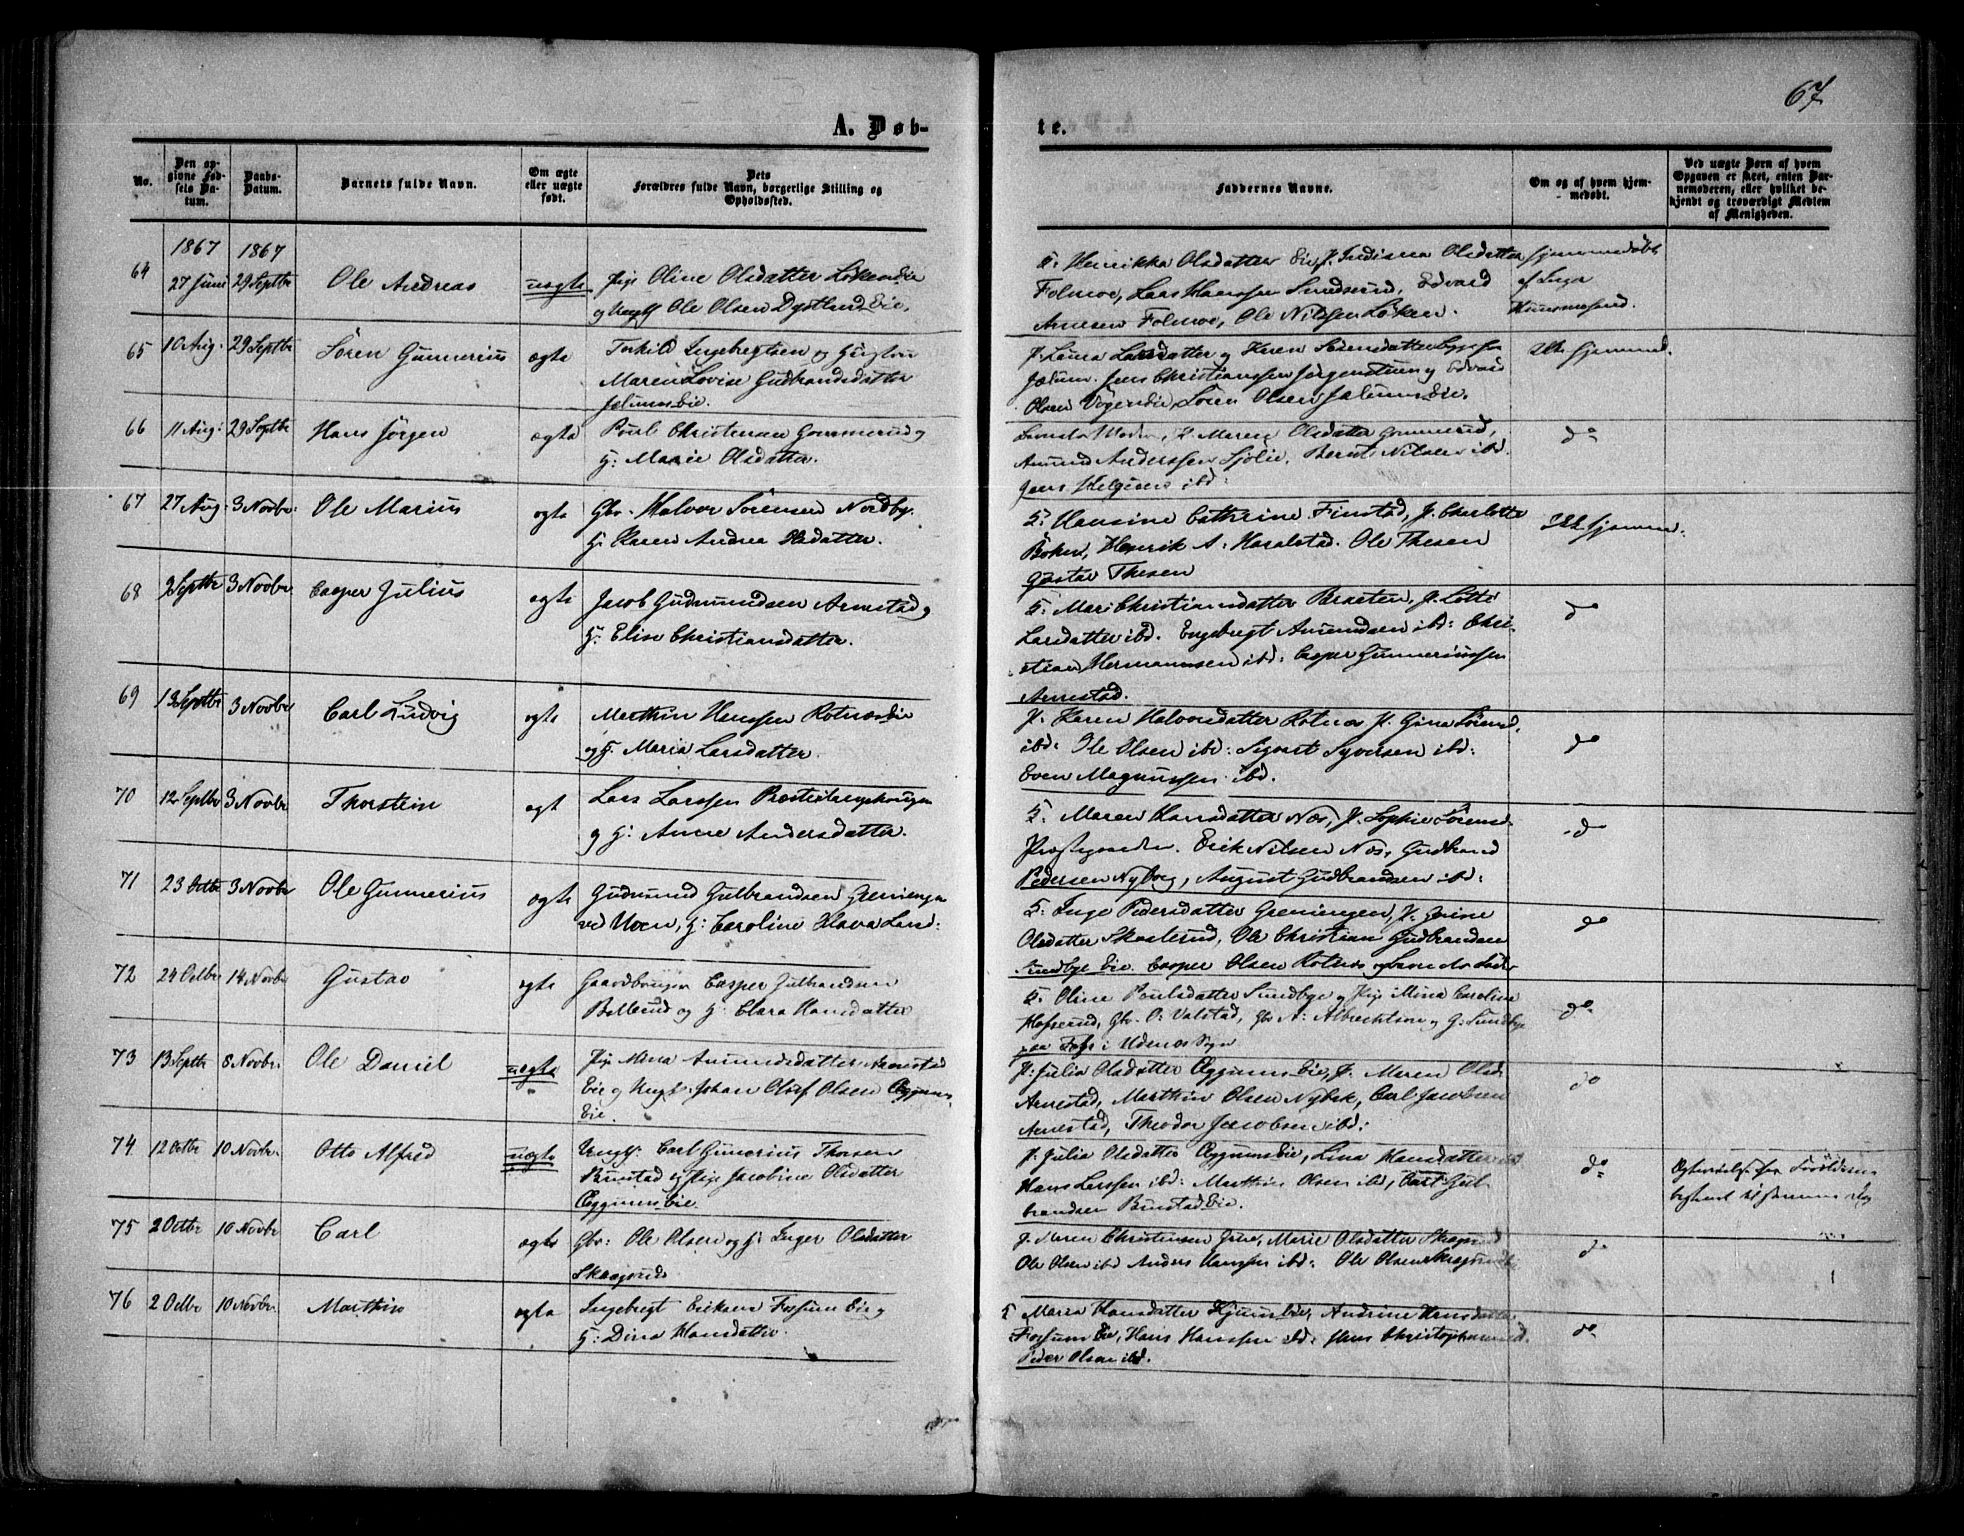 67
A. Døb-
te.
No.
Den op-
givne Fød-
sels Da-
tum.
Daabs-
Datum.
Barnets fulde Navn.
Om ægte
eller uægte
født.
Dets
Forældres fulde Navn, borgerlige Stilling og
Opholdssted.
Faddernes Navne.
Om og af hvem hjem-
medøbt.
Ved uægte Børn af hvem
Opgaven er skeet, enten Bar-
nemoderen, eller hvilket be-
kjendt og troværdigt Medlem
af Menigheden.
1867 1867
64 27 Juni 29 Septbr Ole Andreas uægte
Pige Oline Olsdatter Løkeneie
og Ungk Ole Olsen Dystland Eie.
G: Henrikka Olsdatter Eie, P. Olsdatter
Folmoe, Lars Hanssen Edvard
Arnesen Folmoe, Ole Nilssen Løken.
hjemmedøbt
af Inga
65 10 Aug: 29 Septbr Søren Gunnerius ægte
Torkild Ingebregtsen og Hustru
Maren Lovise Gudbrandsdatter
Jølumseie.
P. Laura Larsdatter og Karen
Jølum. Jens Christianssen og Edvard
Olsen Søren Olsen Jølumseie.
ikke hjemmed.
66 11 Aug: 29 Septbr Hans Jørgen ægte
Poul Christensen Gommerud og
H: Marie Olsdatter.
Barnets Moder, P. Maren Olsdatter Gommerud,
Amund Anderssen Sjølie. Bernt Nilsen ibd.
Jens Helgesen ibd:
do
67 27 Aug: 3 Novbr: Ole Marius ægte
Gbr. Halvor Sørensen Nordby.
H. Karen Andrea Olsdatter.
G: Hansine Cathrine Finstad, P. Charlotte
Henrik A: Haralstad. Ole Thesen
Gustav Thesen
ikke hjemmed.
68 2 Septbr 3 Novbr. Casper Julius ægte
Jacob Gudmundsen Arnestad og
H: Elise Christiansdatter.
G: Mari Christiansdatter Braaten, P. Lotte
Larsdatter ibd. Engebregt Amundsen ibd: Chri-
stian Hermannsen ibd: Casper Gunneriussen
Arnestad.
do
69 13 Septbr 3 Novbr Carl Ludvig ægte
Marthin Hanssen Rotnæseie
og H. Maria Larsdatter.
P. Karen Halvorsdatter Rotnæs P. Gina Sørensd.
ibd: Ole Olsen ibd: Sigvart Syversen ibd:
Even Magnussen ibd.
do
70 12 Septbr 3 Novbr Thorstein ægt
Lars Larssen
og H: Anne Andersdatter.
G. Maren Hansdatter Næs, P. Sophie Sørensd.
Præstegaarden. Erik Nilsen Næs, Gudbrand
Pedersen Nyborg, August Gudbrandsen ibd:
do
71 23 Octbr 3 Novbr Ole Gunnerius ægte
Gudmund Gulbrandsen Greningen
ved Moen, H: Caroline Larsd:
G: Inge Pedersdatter Greningen, P.
Olsdatter Skoslerud, Ole Christian Gudbrandsen
Sundbye Eie. Casper Olsen Rotnes
do
72 24 Octbr 14 Novbr Gustav ægte
Gaardbruger Casper Gulbrandsen
Bellerud og H: Clara Hansdatter
G. Oline Poulsdatter Sundbye og Pige Mina Caroline
Gbr. O: Valstad, Gbr A: Albrechtsen og G: Sundbye
paa i Udenæs Sogn
do
73 13 Septbr 8 Novbr. Ole Daniel uægte
Pige Mina Amundsdatter Arnestad
Eie og Ungk: Johan Oluf Olsen Æggums
Eie.
P: Julia Olsdatter Æggums Eie, P. Maren Olsd.
Arnestad, Marthin Olsen Nybek, Carl Jacobsen
Arnestad, Theodor Jacobsen ibd:
do
74 12 Octbr 10 Novbr. Otto Alfred uægte
Ungk: Carl Gunerius Thorsen
Bunstad og Pige Jacobine Olsdatter
Æggums Eie.
P. Julia Olsdatter Æggumseie, Lina Hansdatter ibd
Hans Larssen ibd: Marthin Olsen ibd, Carl Gul-
brandsen Bunstad Eie.
do
75 2 Octbr 10 Novbr Carl ægte
Gbr: Ole Olsen og H: Inger Olsdatter
Skøgrud.
P. Maren Christensen Marie Olsdatter Skøgrud
Ole Olsen ibd Anders Hanssen ibd: Ole Olsen
do
76 2 Octbr 10 Novbr. Marthin ægte
Ingebregt Eriksen Fossum Eie og
H: Dina Hansdatter.
G Maria Hansdatter Andrine Hansdatter
Fossum Eie, Hans Hanssen ibd: Hans Christophersen ibd.
Peder Olsen ibd.
do